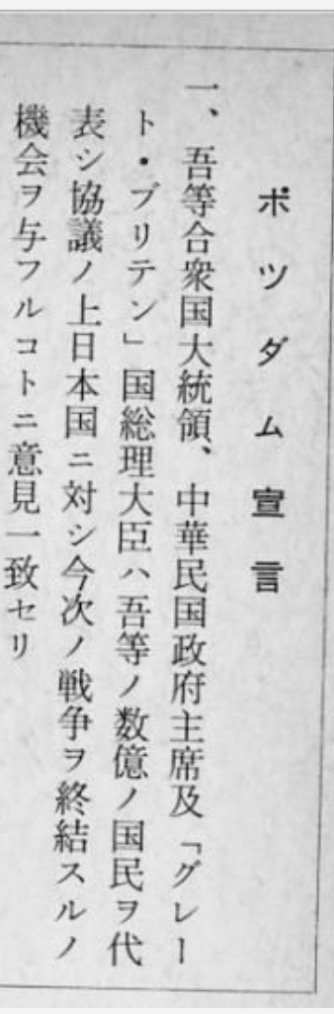 ポツダム宣言
一、吾等合衆国大統領、中華民国政府主席及「グレー
ト・ブリテン」国総理大臣ハ吾等ノ数億ノ国民ヲ代
表シ協議ノ上日本国ニ対シ今次ノ戦争ヲ終結スルノ
機会ヲ与フルコトニ意見一致セリ